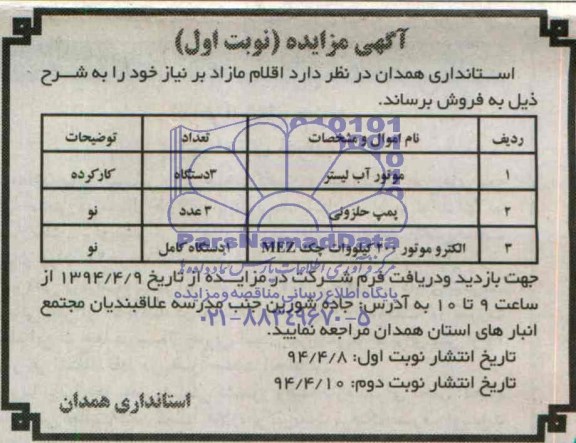 آگهی مزایده (نوبت اول)
استانداری همدان در نظر دارد اقلام مازاد بر نیاز خود را به شرح
ذیل به فروش برساند.
ردیف نام اموال و مشخصات تعداد توضیحات
۱ موتور آب لیستر ۳دستگاه کارکرده
۲ پمپ حلزونی ۳ عدد نو
۳ الکترو موتور کیلووات چک MEZ دستگاه کامل نو
جهت بازدید ودریافت فرم شرکت در مزایده از تاریخ ۱۳۹۴/۴/۹ از
ساعت ۹ تا ۱۰ به آدرس: جاده شورین جنب مدرسه علاقبندیان مجتمع
انبار های استان همدان مراجعه نمایید.
تاریخ انتشار نوبت اول: ۹۴/۴/۸
تاریخ انتشار نوبت دوم: ۹۴/۴/۱۰
استانداری همدان
ParsNamadData
پایگاه اطلاع رسانی مناقصه ومزایده
۰۲۱-۸۸۳۴۹۶۷۰-۵